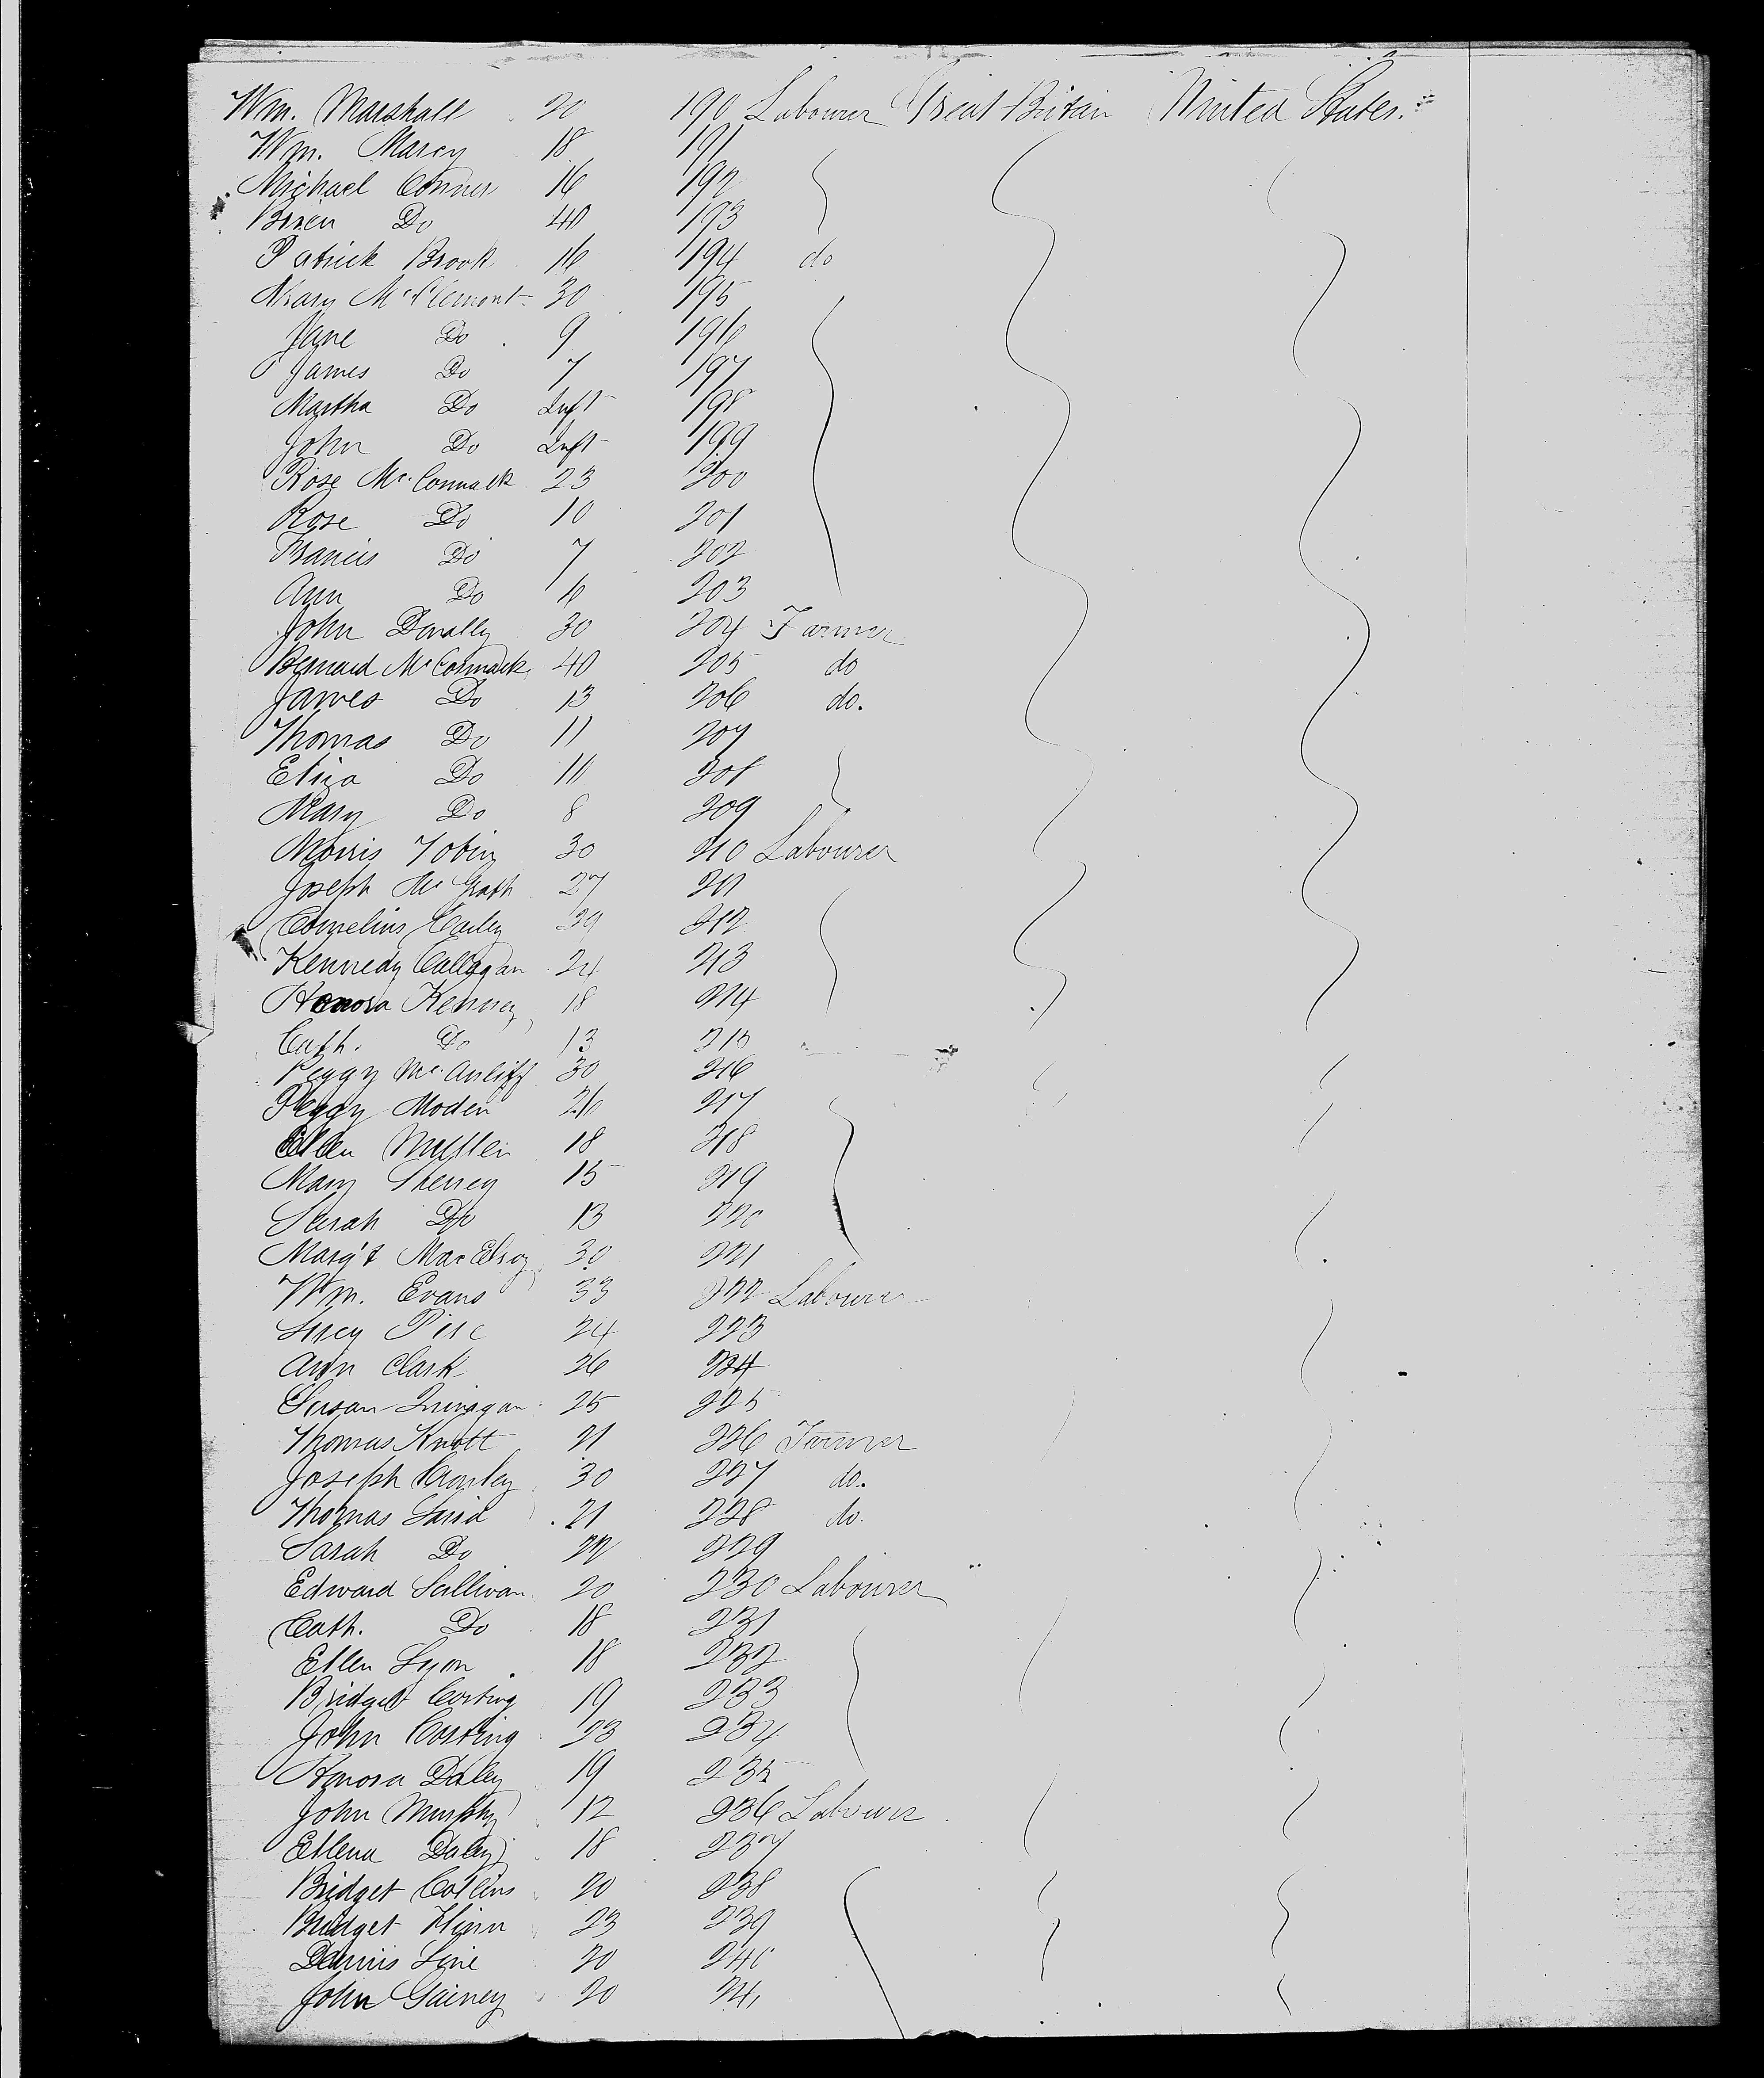 Wm. Marshall 20 190 Labourer Great Britain United States.
Wm. Marcy 18 191
Michael Connor 16 192
Do 40 193
Patrick Brook 16 194 do
Mary McClemont 30 195
Jane Do 9 196
James Do 7 197
Martha Do Inft 198
John Do Inft 199
Rose Mc.Cormack 23 200
Rose Do 10 201
Francis Do 7 202
Ann Do 6 203
John Donally 30 204 Farmer
Bernard McCormack 40 205 do
James Do 13 206 do.
Thomas Do 11 207
Eliza Do 10 208
Mary Do 8 209
Morris Tobin 30 210 Labourer
Joseph McGrath 27 211
Cornelius 212
Kennedy Callagan 24 213
Honora Kenney 18 214
Cath. Do 13 215
Peggy Mc.Auliff 30 216
Peggy Moden 26 217
Ellen Mullen 18 218
Mary Sherrey 15 219
Sarah Do 13 220
Marg't MacElroy 30 221
Wm. Evans 33 222 Labourer
Lucy 24 223
Ann Clark 26 224
Susan 25 225
Thomas Knott 21 226 Farmer
Joseph 30 227 do.
Thomas 21 228 do.
Sarah Do 22 229
Edward Sullivan 20 230 Labourer
Cath. Do 18 231
Ellen Lyon 18 232
Bridget Costing 19 233
John Costing 23 234
Honora Daley 19 235
John Murphy 12 236 Labourer
Ellena Daley 18 237
Bridget Collins 20 238
Bridget Flinn 23 239
Dennis Line 20 240
John Gainey 20 241